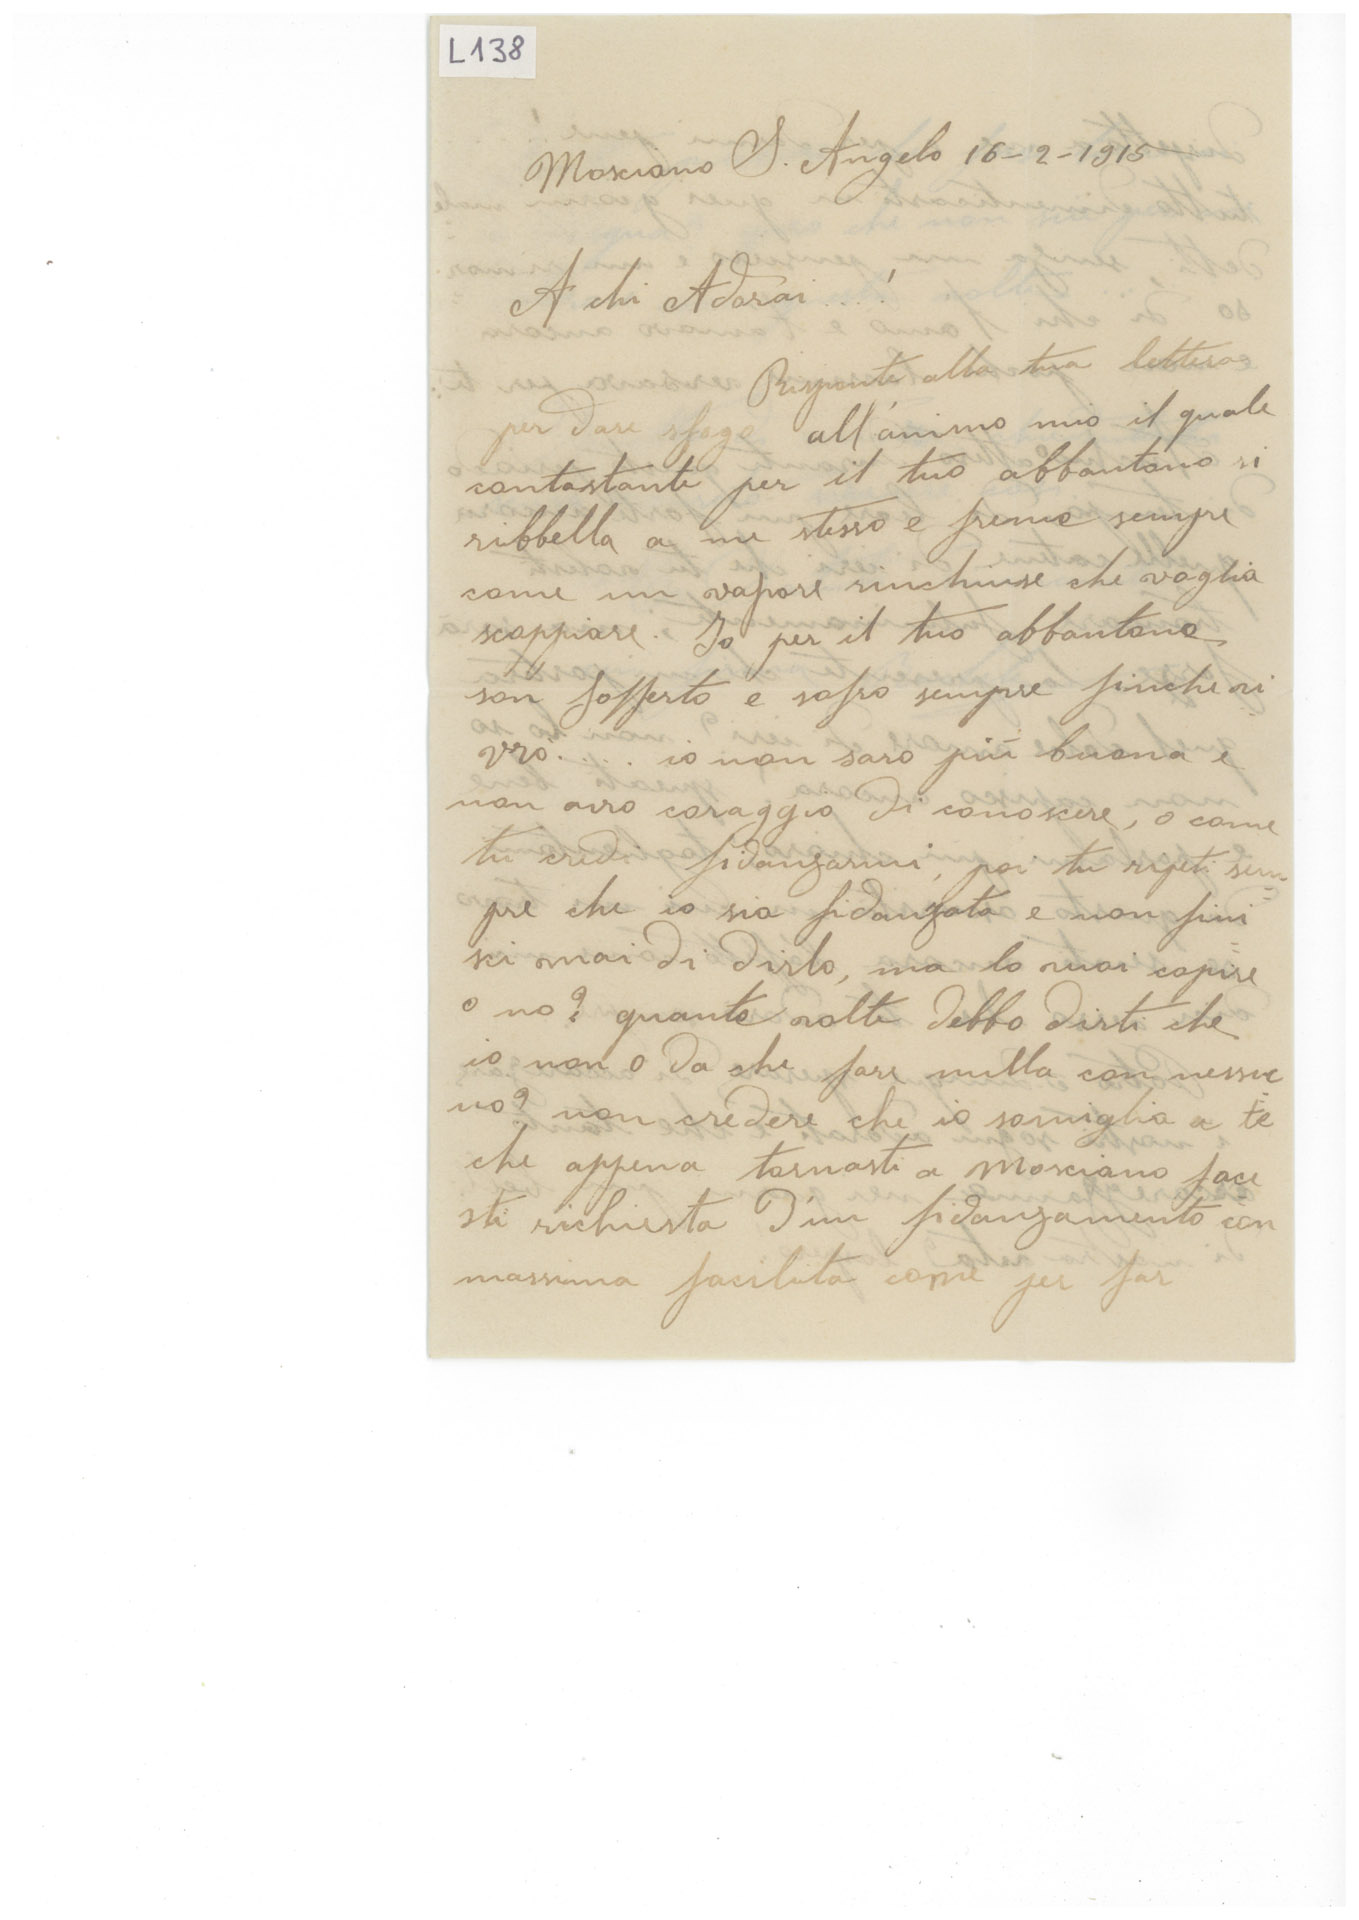 L138
Mosciano S. Angelo 16-2-1915
A chi Adorai...!
Risponte alla tua lettera
per dare sfogo all'animo mio il quale
contastante per il tuo abbantono si
ribbella a me stesso e freme sempre
come un vapore rinchiuse che voglia
scappiare. Io per il tuo abbantono
son sofferto e sofro sempre finche vi
vrò.... io non saro più buona e
non avro coraggio di conoscere, o come
tu credi fidanzarmi, poi tu ripeti sem
pre che io sia fidanzata e non fini
sci mai di dirlo, ma lo vuoi capire
o no? quante volte debbo dirti che
io non o da che fare nulla con nessu
no? non credere che io somiglia a te
che appena tornasti a Mosciano face
sti richiesta d'un fidanzamento con
massima facilita come per far